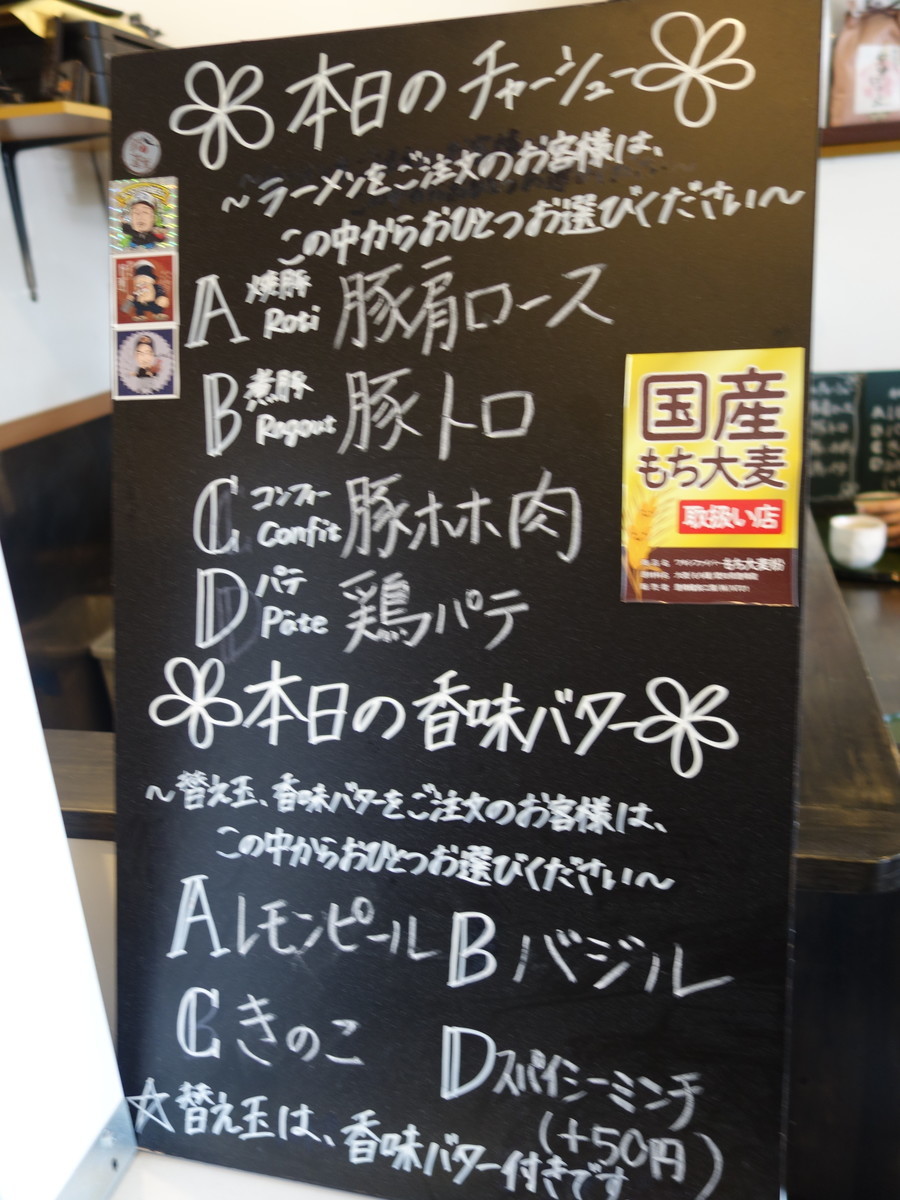 本日のチャーシュー
～ラーメンをご注文のお客様は、
この中からおひとつお選びください～
A 焼豚 Roti 豚肩ロース
B 煮豚 Ragout 豚トロ
C コンフィー Confit 豚ホホ肉
D パテ Pâte 鶏パテ
国産
もち大麦
取扱い店
もち大麦粉
本日の香味バター
～替え玉、香味バターをご注文のお客様は、
この中からおひとつお選びください～
A レモンピール B バジル
C きのこ D スパイシーミンチ
(+50円)
☆替え玉は、香味バター付きです